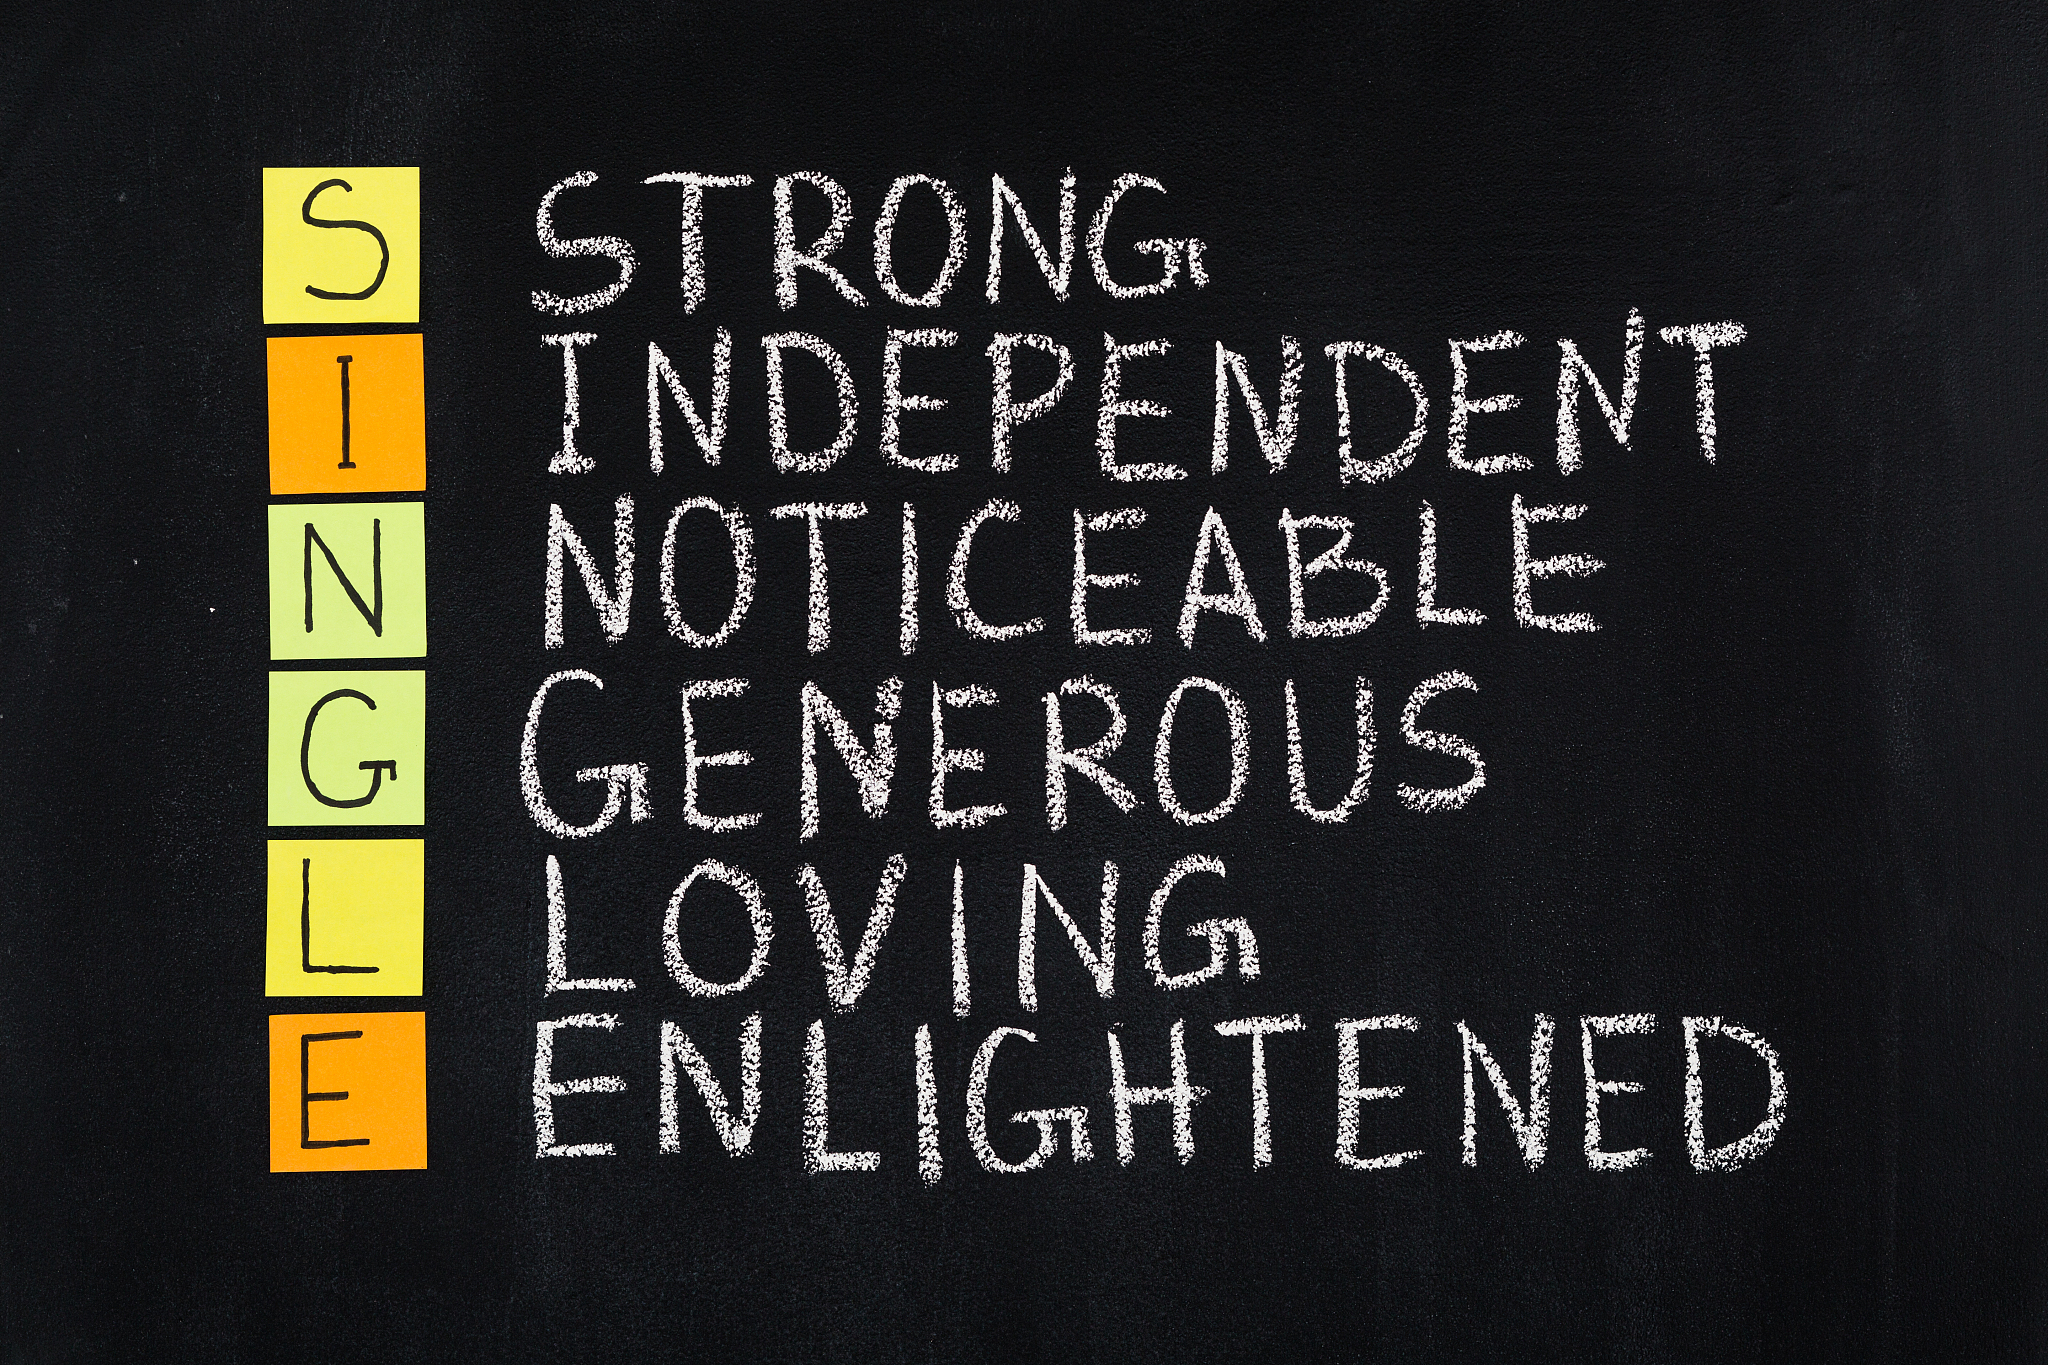 S STRONG
I INDEPENDENT
N NOTICEABLE
G GENEROUS
L LOVING
E ENLIGHTENED